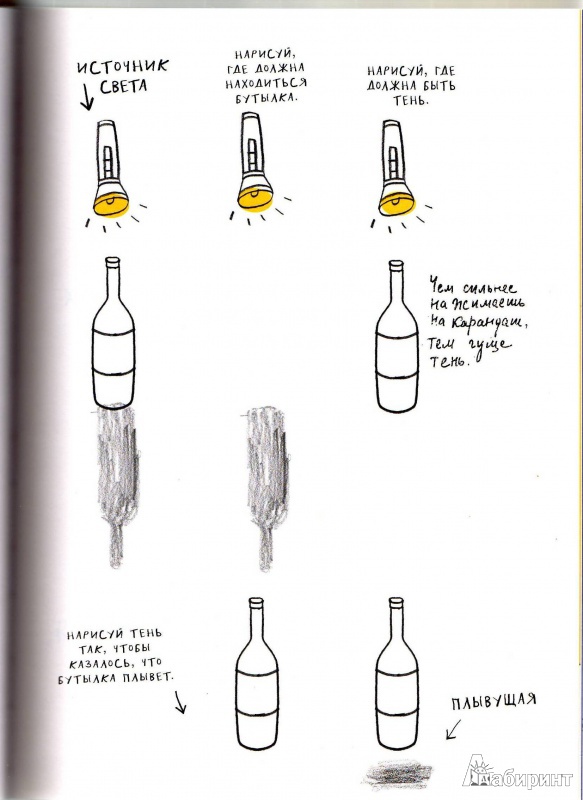 ИСТОЧНИК
СВЕТА
НАРИСУЙ,
ГДЕ ДОЛЖНА
НАХОДИТЬСЯ
БУТЫЛКА.
НАРИСУЙ, ГДЕ
ДОЛЖНА БЫТЬ
ТЕНЬ.
Чем сильнее
нажимаешь
на карандаш,
тем гуще
тень.
НАРИСУЙ ТЕНЬ
ТАК, ЧТОБЫ
КАЗАЛОСЬ, ЧТО
БУТЫЛКА ПЛЫВЕТ.
ПЛЫВУЩАЯ
Лабиринт